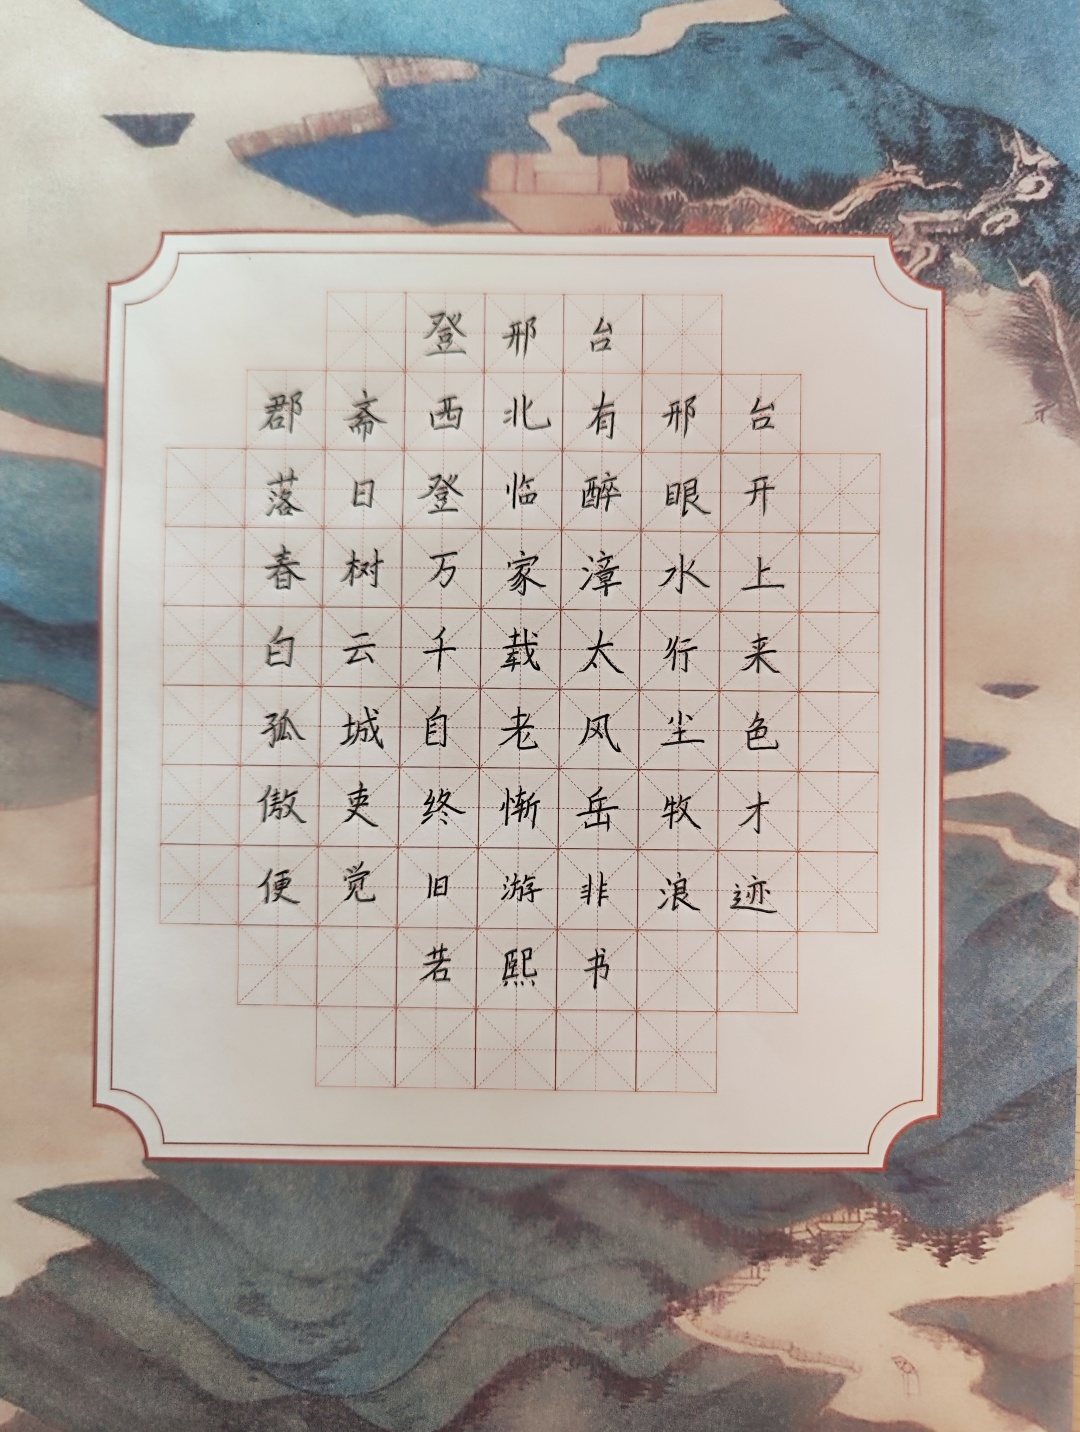 登邢台
郡斋西北有邢台
落日登临醉眼开
春树万家漳水上
白云千载太行来
孤城自老风尘色
傲吏终惭岳牧才
便觉旧游非浪迹
若熙书